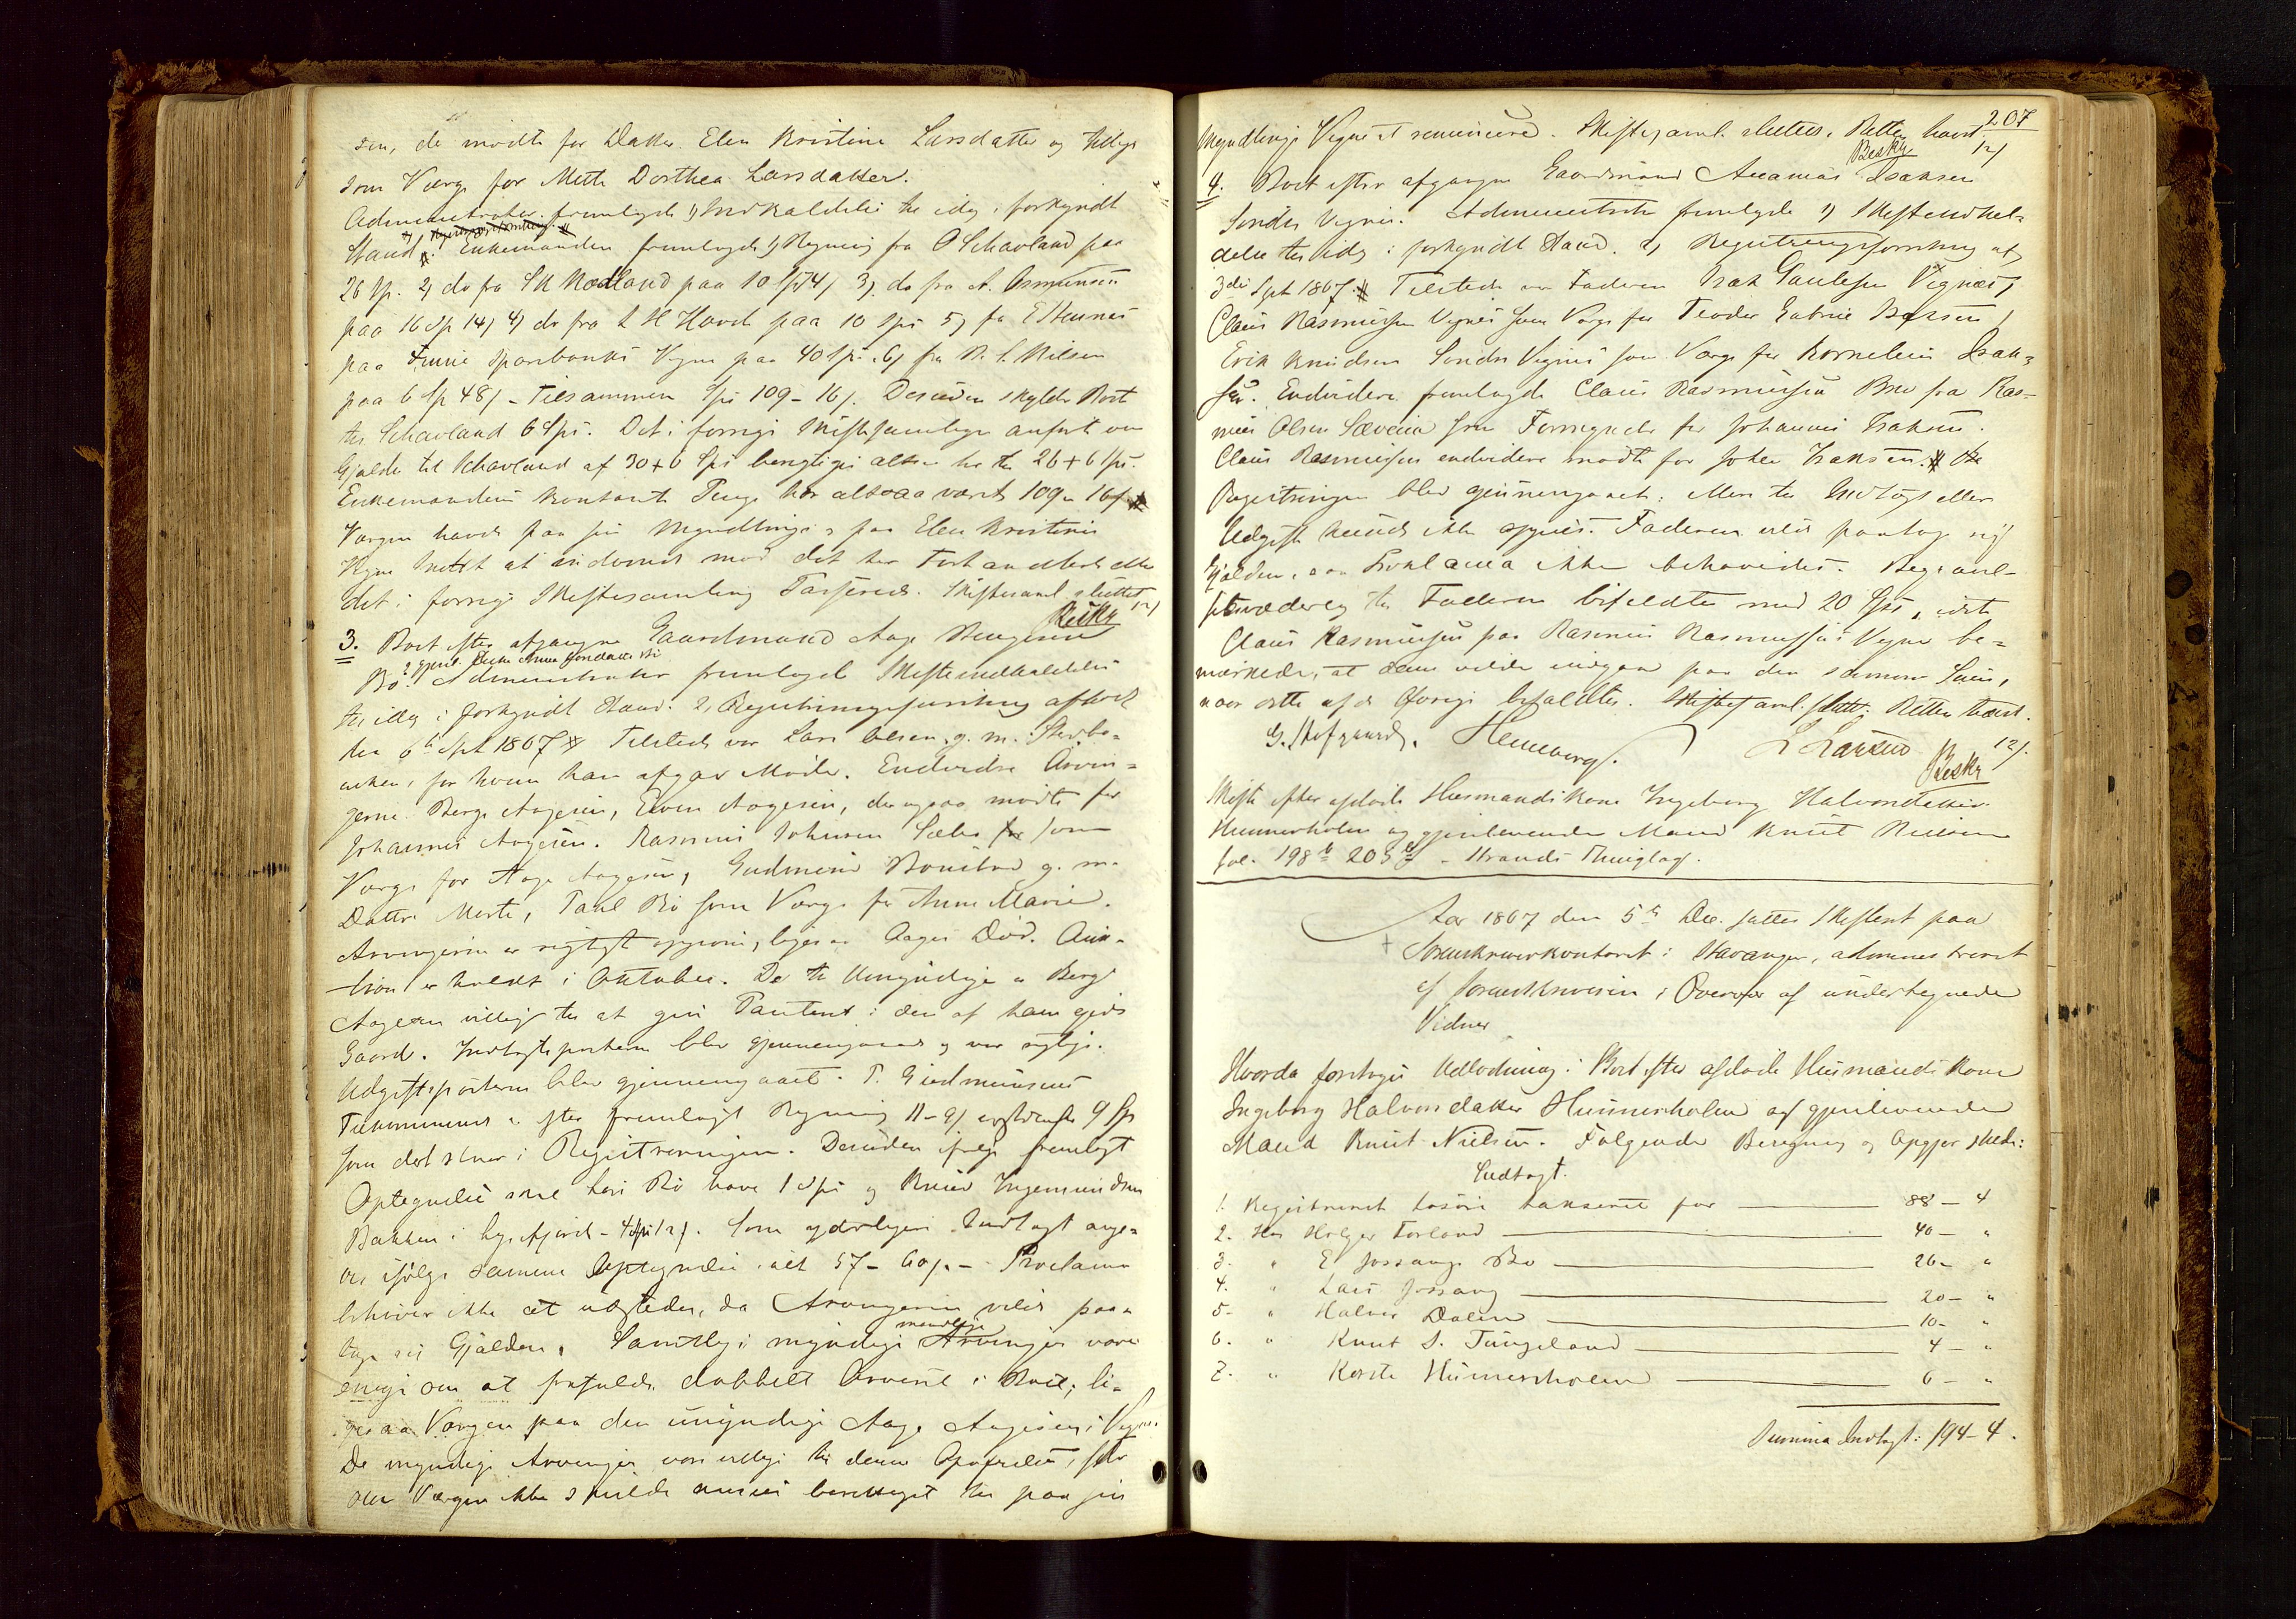 sen, de mødte for Datter Elen Kristine Larsdatter og tillige
som Værge for Mette Dorthea Larsdatter.
Administrator fremlagde 1) Indkaldelse til idag i forkyndt
Stand. Enkemanden fremlagde 1) Regning fra O Schavland paa
26 Sp. 2) do fra SH Nodland paa 10 Sp 74/ 3) do fra A. Asmunsen
paa 16 Sp 14/ 4) do fra L H Havch paa 10 Spd 5) fra E
paa Sparebanks Vegne paa 40 Sp. 6) fra R. S. Nilsen
paa 6 Sp 48/ - Tilsammen Spd 109 - 16/. Desuden skylder Boet
til Schavland 6 Spd. Det i forrige Skiftesamling anførte om
Gjæld til Schavland af 30+6 Spd berigtiges altsaa til 26+6 Spd.
Enkemandens kontante Penge har altsaa været 109 - 16/
Værgen havde paa sin Myndlings og paa Elen Kristines
Vegne Intet at indvende mod det her Forhandlede eller
det i forrige Skiftesamling Passerede. Skiftesaml. sluttet
12/
3. Boet efter afgangne Gaardmand Aage Bengtsen
Bø. Administrator fremlagde Skifteindkaldelse
til idag i forkyndt Stand. 2, Registreringsforretning afholdt
den 6te Sept 1867 Tilstede var Lars Olsen, g. m. Stervbo-
enken, for hvem han afgav Møde. Endvidere Arvin-
gerne Berge Aagesen, Even Aagesen, der ogsaa mødte for
Johannes Aagesen. Rasmus Johnsen Sæbø som
Værge for Aage Aagesen, Gudmund g. m.
Datter Marte, Paul Bø som Værge for Anne Marie.
Arvingerne er rigtigt opgivne, ligesaa Aages Død. Auk-
tion er holdt i Oktober. De til Umyndige er Berge
Aagesen villig til at give Panteret i den af ham
Gaard. Indtægtsposterne blev gjennemgaaet og var rigtige.
Udgiftsposterne blev gjennemgaaet. T. Gudmunsens
Tilkommende er efter fremlagt Regning 11-9/ istedenfor 9 Sp
som det staar i Registreringen. Desuden ifølge fremlagt
Optegnelse skal Bø have 1 Spd og Knud Ingemundsen
Bakken i Lysefjord - 4 Spd 12/. Som yderligere Indtægt angi-
ves ifølge samme Optegnelse ialt 57 - 60/. - Proclama
behøver ikke at udstedes, da Arvingerne vilde paa-
tage sig Gjælden. Samtlige myndige mandlige Arvinger vare
enige om at frafalde dobbelt Arveret i Boet; li-
gesaa Værgen paa den umyndige Aage Aagesens Vegne.
De myndige Arvinger vare villige til denne Opofrelse, selv
om Værgen ikke skulde ansees berettiget til paa sin
207
Myndlings Vegne at renuncere. Skiftesaml. sluttes. Retten hævet.
Beskr 12/
4. Boet efter afgangne Gaardmand Ananias Isaksen
Søndre Vignes. Administrator fremlagde 1) Skifteindkal-
delse til idag i forkyndt Stand. 2) Registreringsforretning af
3die Sept 1867. Tilstede var Faderen Isak Paulsen Vignes,
Claus Rasmussen Vignes som Værge for Teodor Gabriel
Erik Knudsen Søndre Vignes som Værge for Kornelius Isak-
sen. Endvidere fremlagde Claus Rasmussen Brev fra Ras-
mus Olsen Sævena som Formynder for Johannes Isaksen.
Claus Rasmussen endvidere mødte for Isaksen.
Registreringen blev gjennemgaaet: Mere til Indtægt eller
Udgift kunde ikke opgives. Faderen vilde paatage sig
Gjælden, saa Proklama ikke behøvedes. Begravel-
sesvederlag til Faderen bifaldtes med 20 Spd, idet
Claus Rasmussen paa Rasmus Rasmussens Vegne be-
mærkede, at denne vilde indgaa paa den samme Sum,
naar dette af de Øvrige bifaldtes. Skiftesaml. sluttet. Retten hævet.
G. Hofgaard. Henneberg. L Larsen 12/.
Beskr
Skifte efter afdøde Husmandskone Ingeborg Halvorsdatter
Hunnersholm og gjenlevende Mand Knut Nielsen
fol. 198b 205b - Strands Thinglag.
Aar 1867 den 5te Dec. sattes Skifteret paa
Sorenskriverkontoret i Stavanger, administreret
af Sorenskriveren i Overvær af undertegnede
Vidner
Hvorda foretoges Udlodning i Boet efter afdøde Husmandskone
Ingeborg Halvorsdatter Hunnersholm og gjenlevende
Mand Knut Nielsen. Følgende Beregning og Opgjør skede:
Indtægt.
1. Registreret Løsøre takseret for 88 - 4
2. Hos Holger Forland 40 - "
3. " E Jossang Bø 26 - "
4. " Lars Jossang 20 - "
5. " Halvor Dalen 10 - "
6. " Knut S. Tungeland 4 - "
7. " Korste Hunnersholm 6 - "
Summa Indtægt: 194 - 4.